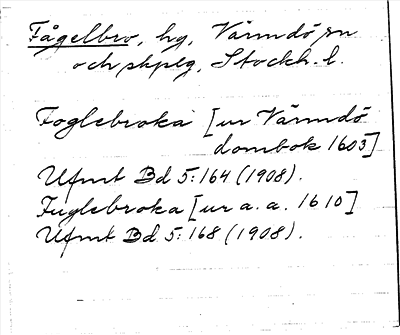 Fågelbro, hg, Värmdö sn
och skplg, Stockh. l.
Foglebroka [ur Värmdö
dombok 1603]
Ufmt Bd 5:164 (1908).
Fuglebroka [ur a. a. 1610]
Ufmt Bd 5:168 (1908).